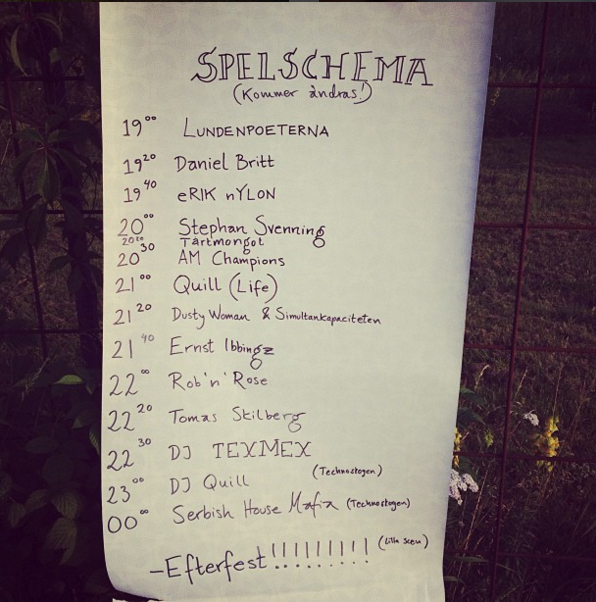 SPELSCHEMA
(Kommer ändras!)
19⁰⁰ LUNDENPOETERNA
19²⁰ Daniel Britt
19⁴⁰ eRIK nYLON
20⁰⁰ Stephan Svenning
20²⁰ Tårtmongot
20³⁰ AM Champions
21⁰⁰ Quill (Life)
21²⁰ Dusty Woman & Simultankapaciteten
21⁴⁰ Ernst Ibbingz
22⁰⁰ Rob'n'Rose
22²⁰ Tomas Skilberg
22³⁰ DJ TEXMEX
23⁰⁰ DJ Quill (Technostogen)
00⁰⁰ Serbish House Mafia (Technostogen)
-Efterfest!!!!!!!!! (Lilla scen)